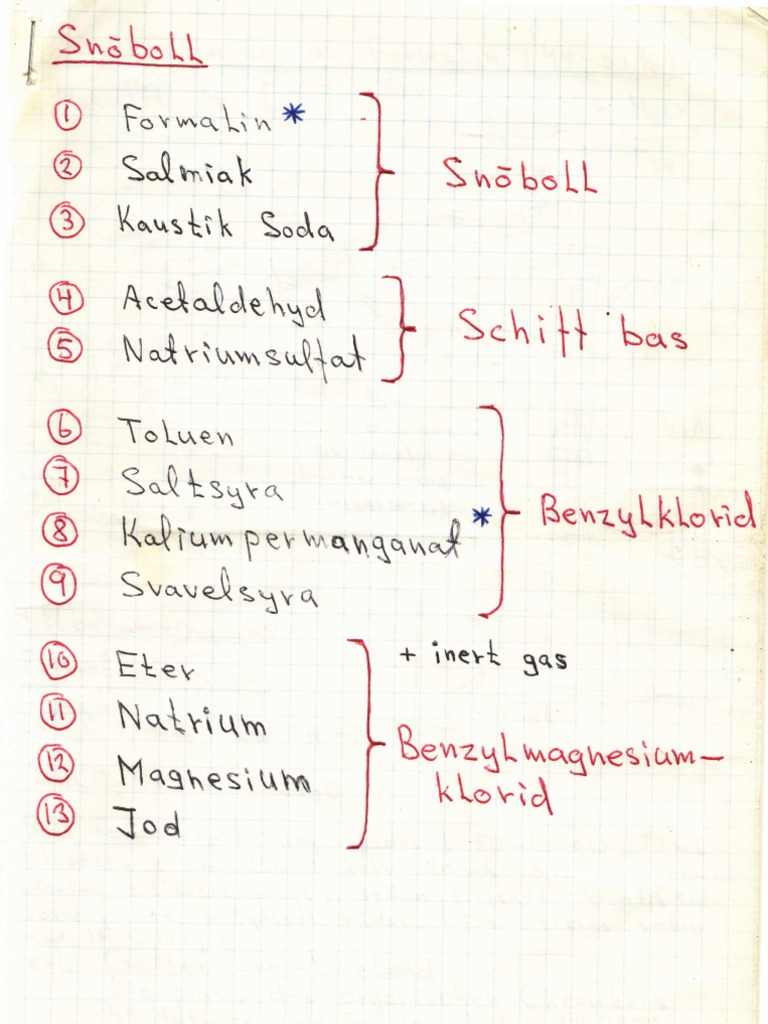 Snōboll
① Formalin *
② Salmiak
③ Kaustik Soda
Snōboll
④ Acetaldehyd
⑤ Natriumsulfat
Schiff bas
⑥ Toluen
⑦ Saltsyra
⑧ Kaliumpermanganat *
⑨ Svavelsyra
Benzylklorid
⑩ Eter
⑪ Natrium
⑫ Magnesium
⑬ Jod
+ inert gas
Benzylmagnesium-
klorid